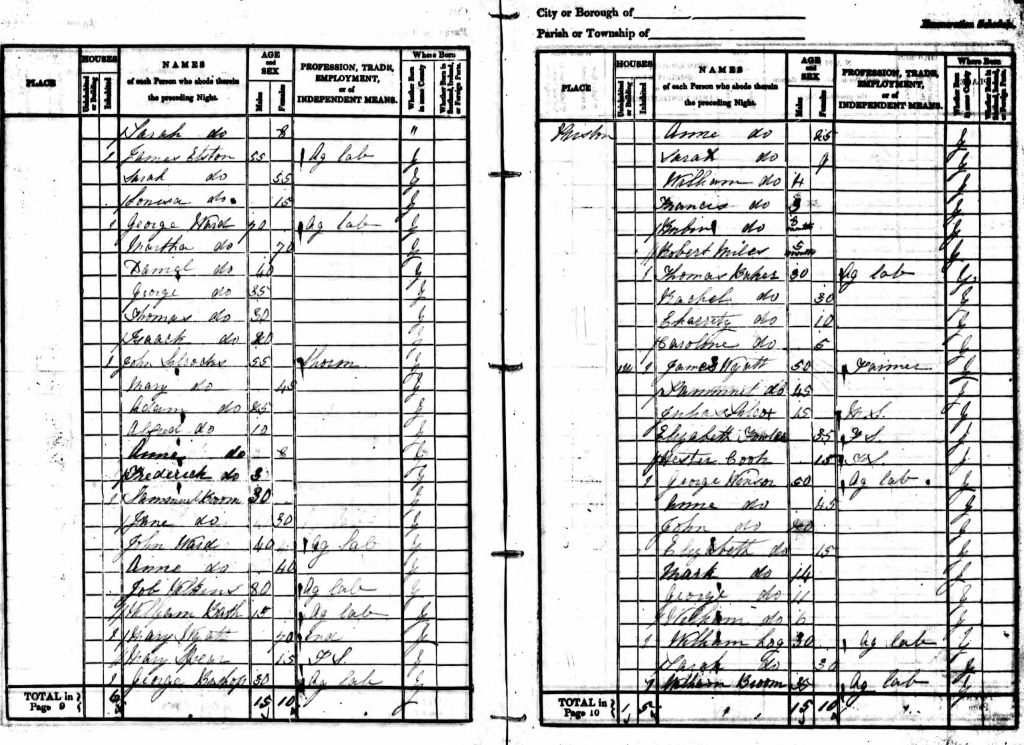 City or Borough of
Parish or Township of
Enumeration Schedule.
PLACE
HOUSES
Uninhabited or Building
Inhabited
NAMES of each Person who abode therein the preceding Night.
AGE and SEX
Males
Females
PROFESSION, TRADE, EMPLOYMENT, or of INDEPENDENT MEANS.
Where Born
Whether Born in same County
Whether Born in Scotland, Ireland, or Foreign Parts.
Sarah do 8 "
1 James Elston 55 Ag lab y
Sarah do 55 y
Louisa do. 15 y
1 George Ward 70 Ag lab y
Martha do 70 y
Daniel do 40 y
George do 35 y
Thomas do 30 y
Isaack do 20 y
1 John 55 y
Mary do 45 y
Adam do y
Alfred do 10 y
Anne do 8 y
Frederick do 3 y
1 30 y
Jane do 30 y
John Ward 40 Ag lab y
Anne do 40 y
Job Wilkins 80 Ag lab y
William Bath 15 Ag lab y
1 Mary Wyatt 70 Ind y
Mary 15 F.S. y
1 George Bishop 30 Ag lab y
TOTAL in Page 9 6 15 10
PLACE
HOUSES
Uninhabited or Building
Inhabited
NAMES of each Person who abode therein the preceding Night.
AGE and SEX
Males
Females
PROFESSION, TRADE, EMPLOYMENT, or of INDEPENDENT MEANS.
Where Born
Whether Born in same County
Whether Born in Scotland, Ireland, or Foreign Parts.
Anne do 25 y
Sarah do 9 y
William do 4 y
Francis do 3 y
do months y
Robert Miles 5 months y
1 Thomas Baker 30 Ag lab y
Rachel do 30 y
Charrity do 10 y
Caroline do 5 y
1 James Wyatt 50 Farmer y
do 45 y
Silcox 15 M.S. y
Elizabeth Fowler 35 F.S. y
Hester Cook 15 F.S. y
1 George 50 Ag lab. y
Anne do 45 y
John do 20 y
Elizabeth do 15 y
Mark do 14 y
George do 11 y
William do 6 y
1 William 30 Ag lab y
Sarah do 30 y
1 William Broom 35 Ag lab y
TOTAL in Page 10 1 5 15 10